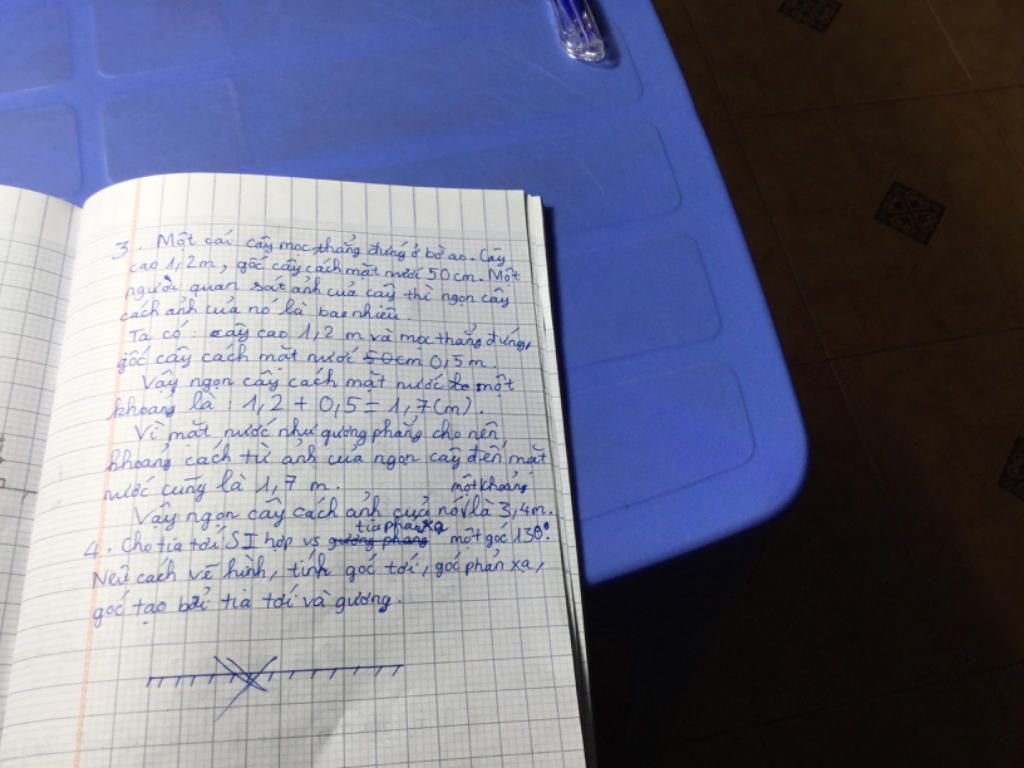 3. Một cái cây mọc thẳng đứng ở bờ ao. Cây
cao 1,2m, gốc cây cách mặt nước 50cm. Một
người quan sát ảnh của cây thì ngọn cây
cách ảnh của nó là bao nhiêu.
Ta có: cây cao 1,2 m và mọc thẳng đứng,
gốc cây cách mặt nước 50cm 0,5m.
Vậy ngọn cây cách mặt nước một
khoảng là : 1,2 + 0,5 = 1,7 (m).
Vì mặt nước như gương phẳng cho nên
khoảng cách từ ảnh của ngọn cây đến mặt
nước cũng là 1,7 m.
một khoảng
Vậy ngọn cây cách ảnh của nó là 3,4m.
tia phản xạ
4. Cho tia tới SI hợp vs gương phẳng một góc 130°.
Nêu cách vẽ hình, tính góc tới, góc phản xạ,
góc tạo bởi tia tới và gương.